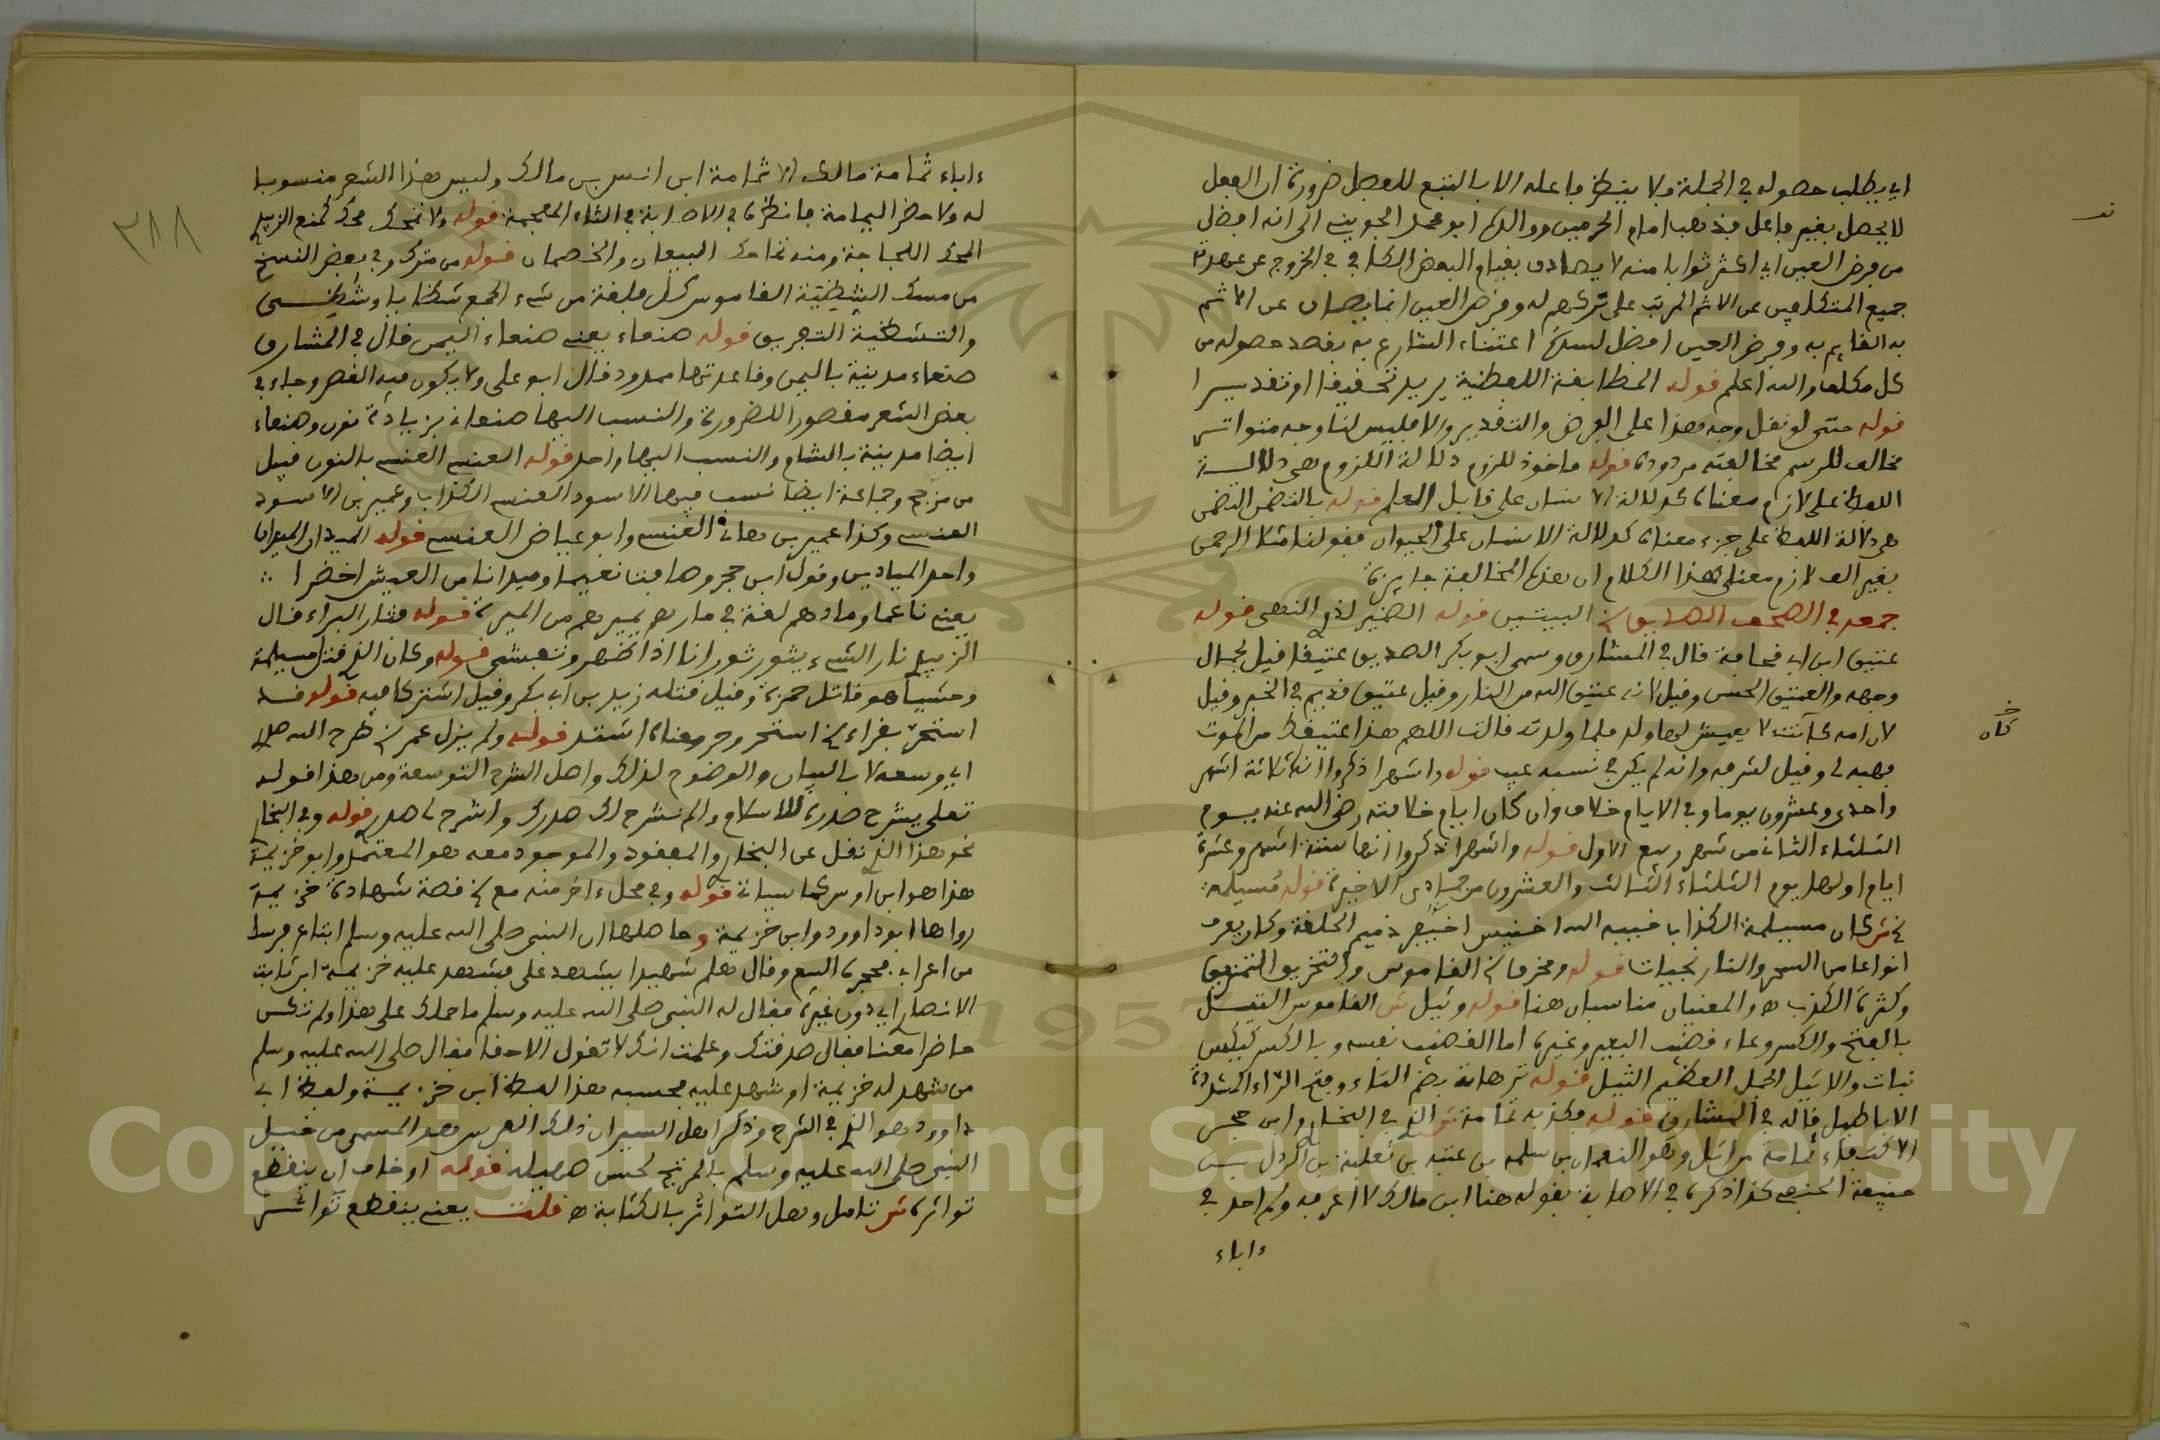 اي يطلب حصوله في الجملة ولا ينظر فاعله الا بالتبع للفعل ضرورة ان الفعل
لا يحصل بغير فاعل فذهب امام الحرمين ووالده ابو محمد الجويني الى انه افضل
من فرض العين اي اكثر ثوابا منه لا يصادف بقيام البعض الكافي في الخروج عن عهدته
جميع المتكلفين عن الاثم المرتب على تركهم له وفرض العين انما يصان عن الاثم
به القايم به وفرض العين افضل لشدة اعتناء الشارع به بقصد حصوله من
كل مكلف والله اعلم قوله المطابقة اللفظية يريد تحقيقا او تقديرا
قوله حتى لو نقل وجه هذا على الفرض والتقدير والا فليس لنا وجه متواتر
مخالف للرسم مخالفته مردودة قوله ماخوذ للزوم دلالة اللزوم هي دلالة
اللفظ على لازم معناه كدلالة الانسان على قابل العلم قوله بالتضمن التضمن
هي دلالة اللفظ على جزء معناه كدلالة الانسان على الحيوان فقولنا مثلا الرحمن
بغير الف لازم معنى هذا الكلام ان هذه المخالفة جايزة
جمعه في الصحف الصديق البيتين قوله الضمير لذي النهى قوله
عتيق ابن ابي قحافة قال في المشارق وسمي ابو بكر الصديق عتيقا قيل لجمال
وجهه والعتيق الحسن وقيل لانه عتيق الله من النار وقيل عتيق قديم في الخير وقيل
لان امه كانت لا يعيش لها ولد فلما ولدته قالت اللهم هذا عتيقك من الموت
فهبه لي وقيل لشرفه وانه لم يكن في نسبه عيب قوله واشهرا ذكروا انه ثلاثة اشهر
واحدى وعشرون يوما وفي الايام خلاف وان كان ايام خلافته رضي الله عنه يوم
الثلثاء الثاني من شهر ربيع الاول قوله واشهرا ذكروا انها ستة اشهر وعشرة
ايام اولها يوم الثلثاء الثالث والعشرون من جمادى الاخيرة قوله مسيلمة
كان مسيلمة الكذاب خبيبه الله اخنس اخيفر ذميم الخلقة وكان يعرف
انواعا من السحر والنارنجيات قوله ومخرفا القاموس والتخريق التمزيق
وكثرة الكذب ه والمعنيان مناسبان هنا قوله وثيل ش القاموس الثيل
بالفتح والكسر وعاء قضيب البعير وغيره اما القضيب نفسه وبالكسر ككيس
نبات والاثيل الجمل العظيم الثيل قوله ترهاته بضم التاء وفتح الراء المشددة
الاباطيل قاله في المشارق قوله وكذبه ثمامة الذي في البخاري وابن حجر
الاكتفاء ثمامة بن اثال وهو النعمان بن سلمه بن عتبه بن ثعلبة بن الدول بن
حنيفة الحنفي كذا ذكره في الاصابة بقوله هنا ابن مالك لا اعرفه ولم اجد في
ءاباء
كان
٣٨٨
ءاباء ثمامة مالك الا ثمامة ابن انس بن مالك وليس هذا الشعر منسوبا
له ولا حضر اليمامة فانظره في الاصابة في الثاء المعجمة قوله ولا تمحك محك كمنع الزبيدي
المحك اللجاجة ومنه تماحك البيعان والخصمان قوله من مترك وفي بعض النسخ
من مسك الشظية القاموس كل فلقة من شيء الجمع شظايا وشظي
والتشظية التفريق قوله صنعاء يعني صنعاء اليمن قال في المشارق
صنعاء مدينة باليمن وقاعدتها ممدود قال ابو علي ولا يكون فيه القصر وجاء في
بعض الشعر مقصورا للضرورة والنسب اليها صنعاني بزيادة نون وصنعاء
ايضا مدينة بالشام والنسب اليها واحد قوله العنسي العنسي بالنون قبيل
من مذحج وجماعة ايضا نسب فيها الاسود العنسي الكذاب وعمير بن الاسود
العنسي وكذا عمير بن هانئ العنسي وابو عياض العنسي قوله الميدان الميدان
واحد الميادين وقول ابن حجر وصادفنا نعيما وميدانا من العيش اخضرا
يعني ناعما ومادهم لغة في مارهم يميرهم من الميرة قوله فثار البراء قال
الزبيدي ثار الشيء يثور ثورانا اذا ظهر وتفشى قوله وكان الذي قتل مسيلمة
وحشيا هو قاتل حمزة وقيل قتله زيد بن ابي بكر وقيل اشتركا فيه قوله قد
استحر بقراء استحر وحر معناه اشتد قوله ولم يزل عمر شرح الله صدره
اي وسعه لا بالبيان والوضوح لذلك واصل الشرح التوسعة ومن هذا قوله
تعلى يشرح صدره للاسلام والم نشرح لك صدرك واشرح لي صدري قوله وفي البخاري
نحو هذا الذي نقل عن البخاري والمفقود والموجود معه هو المعتمد وابو خزيمة
هذا هو ابن اوس كما سيأتي قوله وفي محل ءاخر منه مع قصة شهادة خزيمة
رواها ابو داوود وابن خزيمة وحاصلها ان النبي صلى الله عليه وسلم ابتاع فرسا
من اعرابي فجحره البيع وقال هلم شهيدا يشهد علي فشهد عليه خزيمة ابن ثابت
الانصاري دون غيره فقال له النبي صلى الله عليه وسلم ما حملك على هذا ولم تكن
حاضرا معنا فقال صدقتك وعلمت انك لا تقول الا حقا فقال صلى الله عليه وسلم
من شهد له خزيمة او شهد عليه فحسبه هذا لفظ ابن خزيمة ولفظ ابي
داوود هو الذي في الشرح وذكر اهل السير ان ذلك الفرس هو المسمى من خيل
النبي صلى الله عليه وسلم بالمرتجز لحسن صهيله قوله او خاف ان ينقطع
تواتره ش تامل وهل التواتر بالكتابة ه قلت يعني ينقطع تواتر
Copyright © King Saud University
1957